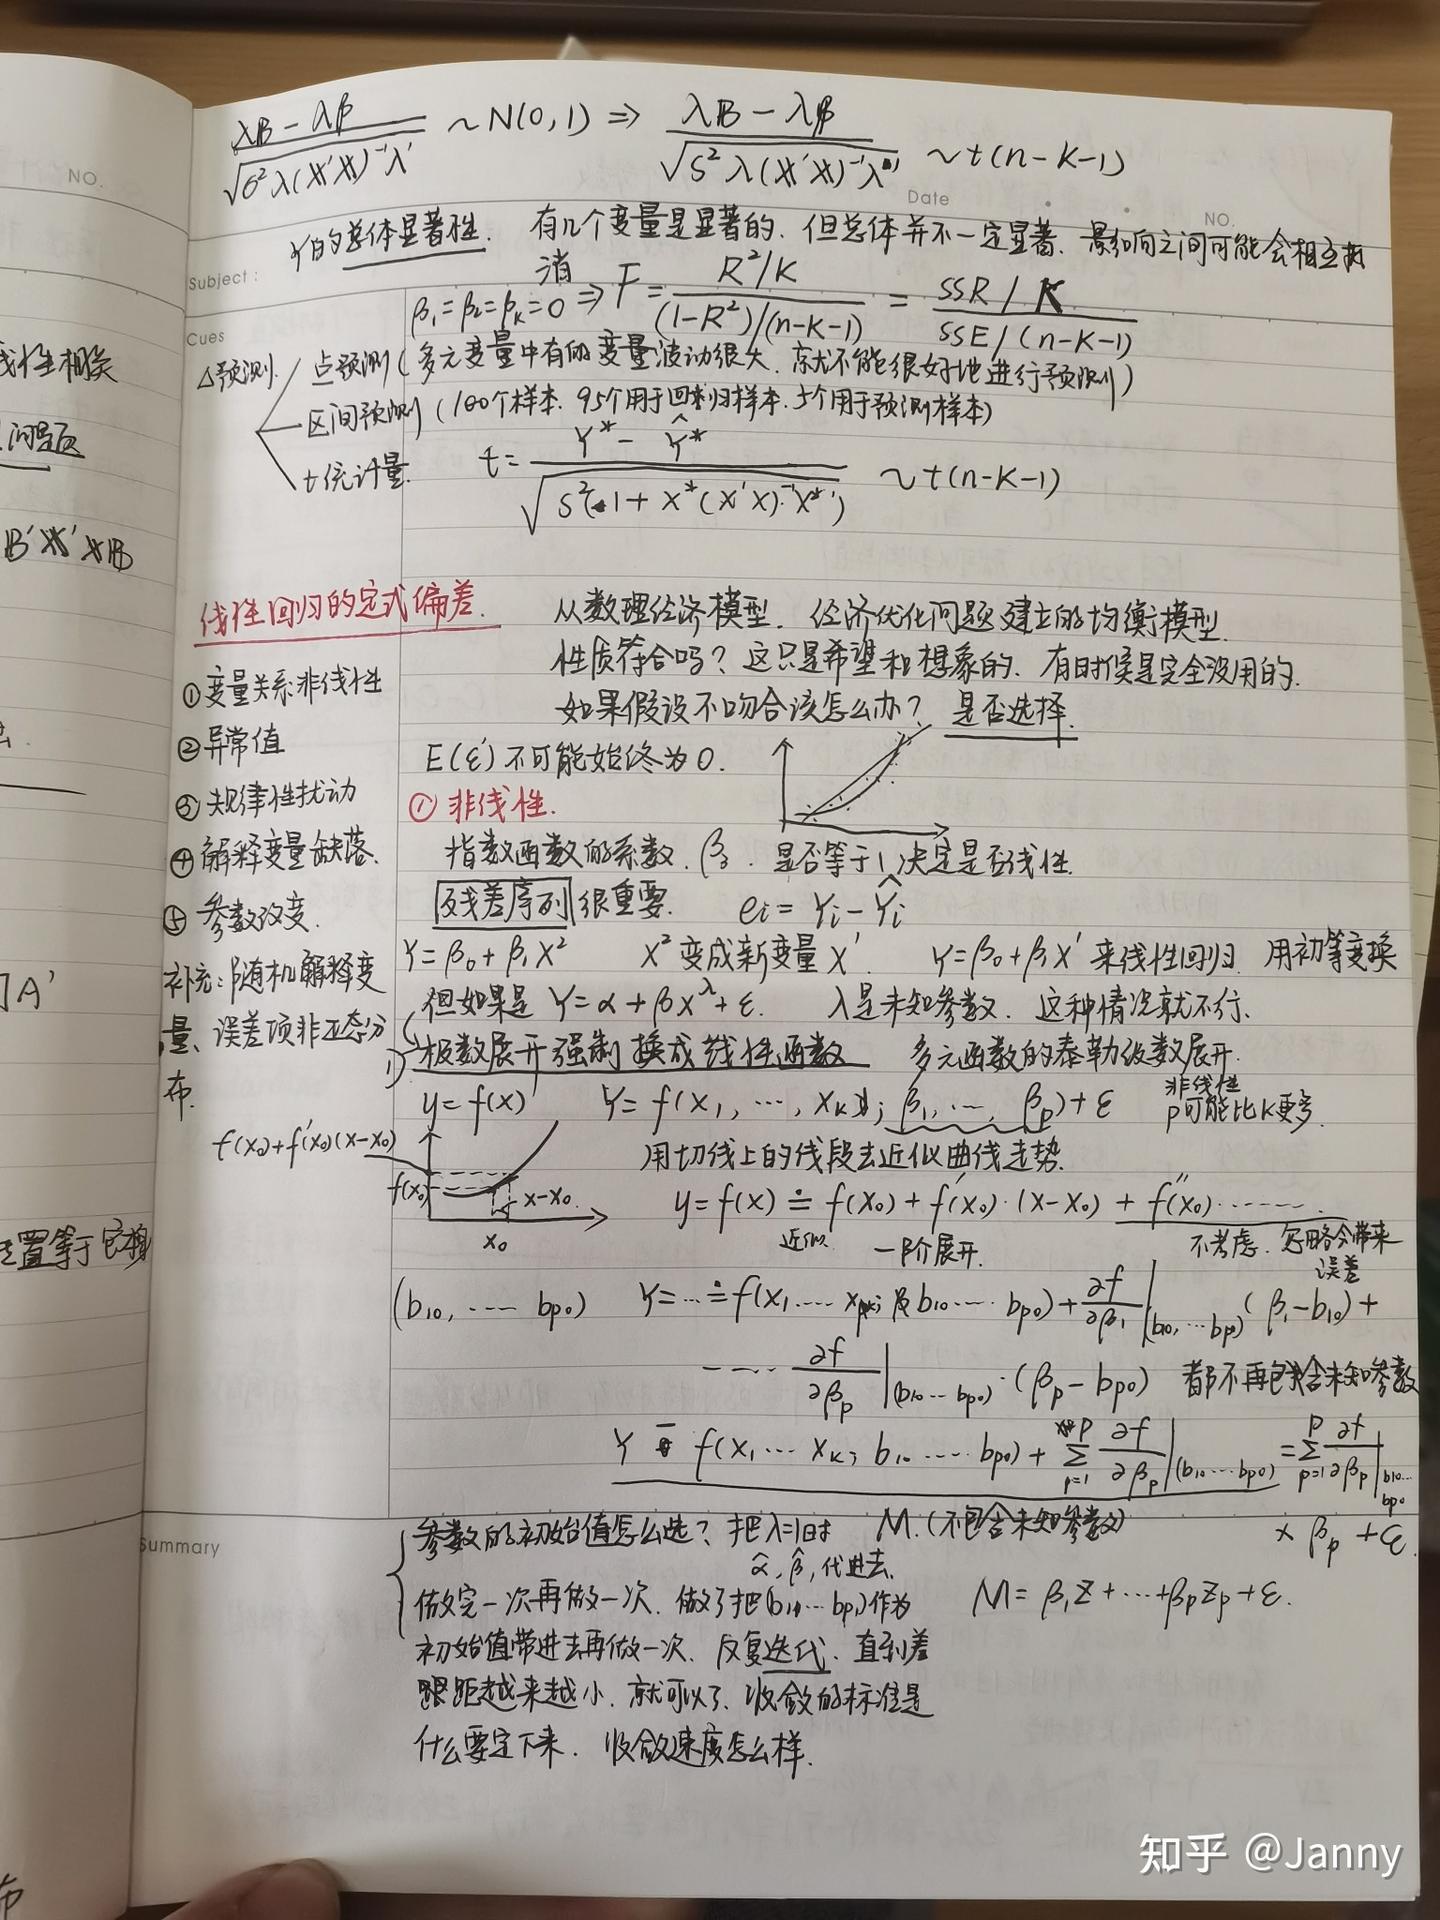 λB - λβ / √σ²λ(X'X)⁻¹λ' ~ N(0,1) ⇒ λB - λβ / √S²λ(X'X)⁻¹λ' ~ t(n-K-1)
NO.
Date
NO.
Subject:
Y的的总体显著性. 有几个变量是显著的. 但总体并不一定显著、影响向之间可能会相互抵
消
β₁=β₂=βK=0 ⇒ F = R²/K / (1-R²)/(n-K-1) = SSR/K / SSE/(n-K-1)
Cues
△预测
点预测(多元变量中有的变量波动很大. 就不能很好地进行预测)
区间预测(100个样本. 95个用于回归样本. 5个用于预测样本)
t统计量. t = Y* - Ŷ* / √S²(1+X*(X'X)⁻¹X*') ~ t(n-K-1)
线性相关
问题
B'X'XB
线性回归的定式偏差.
①变量关系非线性
②异常值
③规律性扰动
④解释变量缺落.
⑤参数改变.
补充:随机解释变
量、误差项非正态分
布.
从数理经济模型. 经济优化问题建立的均衡模型.
性质符合吗? 这只是希望和想象的. 有时候是完全没用的.
如果假设不吻合该怎么办? 是否选择.
E(ε)不可能始终为0.
①非线性.
指数函数的系数. β₂. 是否等于1决定是否线性.
残差序列很重要. ei = Yi - Ŷi
Y=β₀+β₁X² X²变成新变量X'. Y=β₀+β₁X'来线性回归. 用初等变换
但如果是 Y=α+βX^λ+ε. λ是未知参数. 这种情况就不行.
]A'
1)极数展开强制换成线性函数 多元函数的泰勒级数展开.
y=f(x) Y=f(X₁, …, XK; β₁, …, βp)+ε 非线性 p可能比K更多.
f(x₀)+f'(x₀)(x-x₀)
用切线上的线段去近似曲线走势.
f(x₀)
x-x₀
x₀
y=f(x)≐f(x₀)+f'(x₀)·(x-x₀)+f''(x₀)……
近似 一阶展开. 不考虑. 忽略会带来
误差
(b₁₀, …… bp₀) Y=…≐f(X₁…XK; b₁₀……bp₀)+∂f/∂β₁|(b₁₀,…bp₀)(β₁-b₁₀)+
……∂f/∂βp|(b₁₀…bp₀)·(βp-bp₀) 都不再包含未知参数
Y = f(X₁…XK; b₁₀……bp₀)+Σ^P_{p=1} ∂f/∂βp|(b₁₀…bp₀) = Σ^P_{p=1} ∂f/∂βp|b₁₀…bp₀
× βp+ε.
Summary
参数的初始值怎么选? 把λ=1时 M.(不包含未知参数)
α̂, β̂, 代进去.
做完一次再做一次. 做了把(b₁₁…bp₁)作为 M=β₁Z+…+βpZp+ε.
初始值带进去再做一次. 反复迭代. 直到差
跟距越来越小. 就可以了. 收敛的标准是
什么要定下来. 收敛速度怎么样.
知乎 @Janny